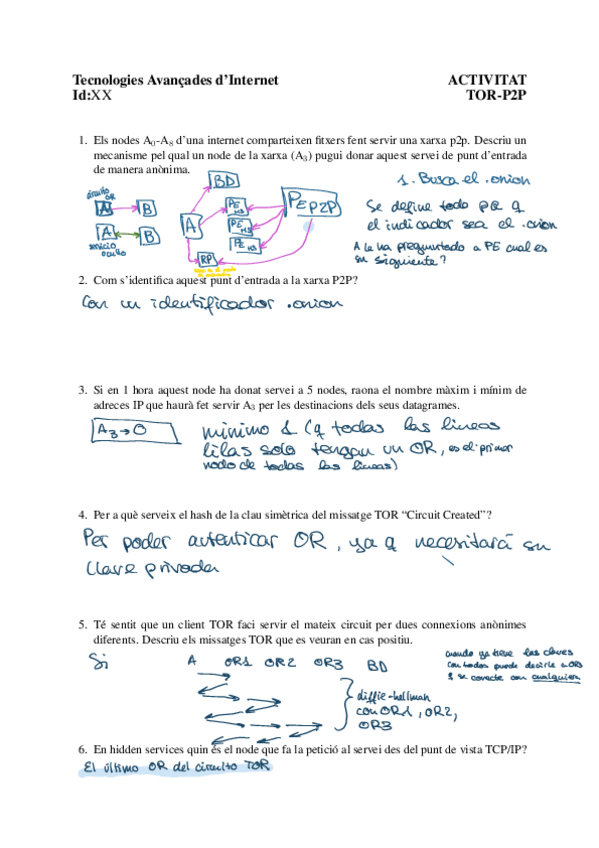 Tecnologies Avançades d'Internet ACTIVITAT
Id:XX TOR-P2P
1. Els nodes A0-A8 d'una internet comparteixen fitxers fent servir una xarxa p2p. Descriu un
mecanisme pel qual un node de la xarxa (A3) pugui donar aquest servei de punt d'entrada
de manera anònima.
circuito
OR
A B
A B
servicio
oculto
BD
A
PE HS
PE HS
PE HS
PE P2P
RP
1. Busca el .onion
Se define todo PQ q
el indicador sea el .onion
A le ha preguntado a PE cual es
su siguiente?
2. Com s'identifica aquest punt d'entrada a la xarxa P2P?
Con un identificador .onion
3. Si en 1 hora aquest node ha donat servei a 5 nodes, raona el nombre màxim i mínim de
adreces IP que haurà fet servir A3 per les destinacions dels seus datagrames.
A3→O
minimo 1 (q todas las lineas
lilas solo tengan un OR, es el primer
nodo de todas las lineas)
4. Per a què serveix el hash de la clau simètrica del missatge TOR "Circuit Created"?
Per poder autenticar OR, ya q necesitará su
llave privada
5. Té sentit que un client TOR faci servir el mateix circuit per dues connexions anònimes
diferents. Descriu els missatges TOR que es veuran en cas positiu.
Si A OR1 OR2 OR3 BD
cuando ya tiene las claves
con todos puede decirle a OR3
q se conecte con cualquien
diffie-hellman
con OR1, OR2,
OR3
6. En hidden services quin és el node que fa la petició al servei des del punt de vista TCP/IP?
El último OR del circuito TOR